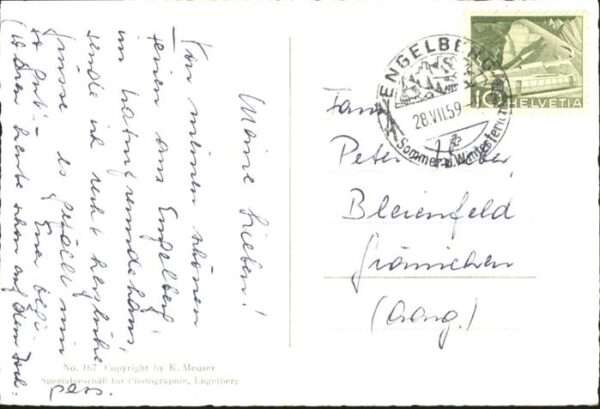 Meine Lieben!
Von meinem schönen
Ferien aus Engelberg
im Naturfreundehaus,
sende ich recht herzliche
Grüsse es gefällt mir
so gut.
(Waren heute schon auf dem Joch-
pass.
No. 167 Copyright by K. Meuser
Spezialgeschäft für Photographie, Engelberg
ENGELBERG
28.VII.59
Sommer u. Winter
10 HELVETIA
Fam.
Peter
Bleienfeld
Gränichen
(Aarg.)